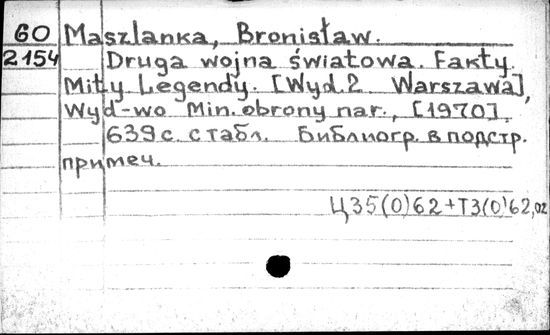 60 Maszlanka, Bronisław.
2154 Druga wojna światowa. Fakty.
Mity. Legendy. [Wyd.2. Warszawa],
Wyd-wo Min. obrony nar., [1970].
639 с. с табл. Библиогр. в подстр.
примеч.
Ц35(0)62+Т3(0)62,02